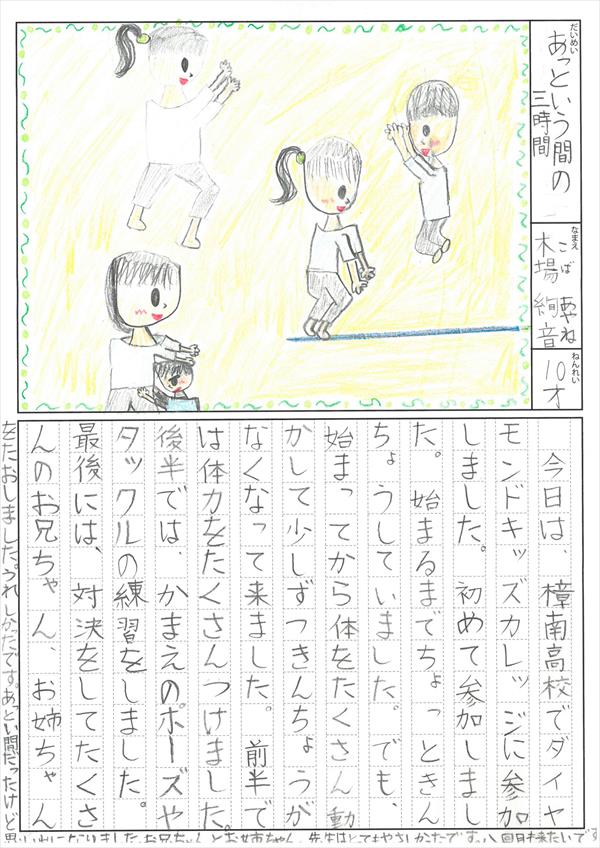 だいめい
あっという間の
三時間
なまえ
こば あやね
木場 絢音
ねんれい
10才
今日は、樟南高校でダイヤ
モンドキッズカレッジに参加
しました。初めて参加しまし
た。始まるまでちょっときん
ちょうしていました。でも、
始まってから体をたくさん動
かして少しずつきんちょうが
なくなって来ました。前半で
は体力をたくさんつけました。
後半では、かまえのポーズや
タックルの練習をしました。
最後には、対決をしてたくさ
んのお兄ちゃん、お姉ちゃん
をたおしました。うれしかったです。あっとい間だったけど
なりました。お兄ちゃんとお姉ちゃん、先生はとてもやさしかったです。